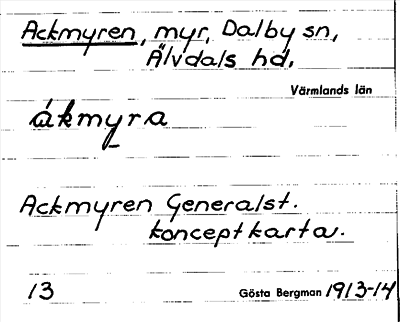 Ackmyren, myr, Dalby sn,
Älvdals hd.
Värmlands län
ákmyra
Ackmyren Generalst.
konceptkarta.
13 Gösta Bergman 1913-14